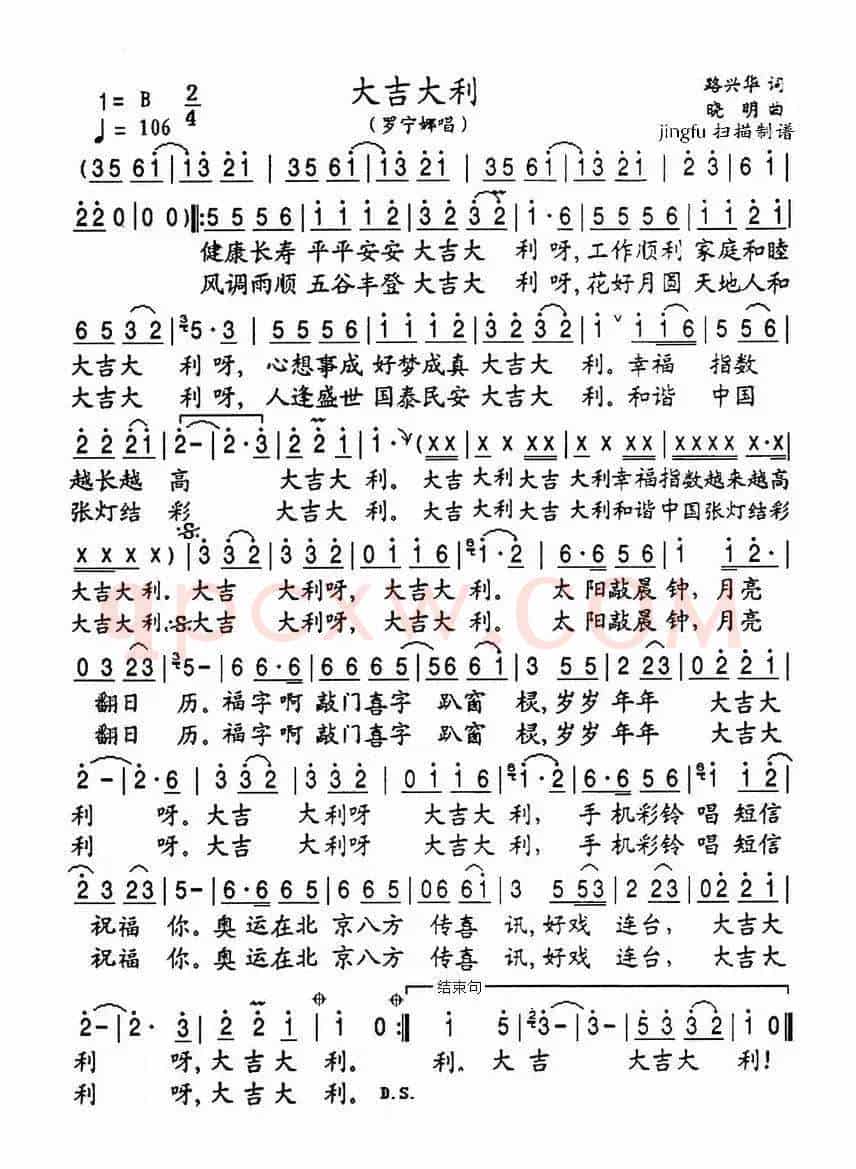 大吉大利
1= B 2/4
♩= 106
(罗宁娜唱)
路兴华 词
晓 明 曲
jingfu 扫描制谱
(35 61|13 21| 35 61|13 21|35 61|13 21| 2 3|6 1|
220|00)‖:5556|1112|3232|1·6|5556|1121|
健康长寿 平平安安 大吉大 利呀,工作顺利 家庭和睦
风调雨顺 五谷丰登 大吉大 利呀,花好月圆 天地人和
6532|5·3|5556|1112|3232|1 116|556|
大吉大 利呀, 心想事成 好梦成真 大吉大 利。幸福 指数
大吉大 利呀, 人逢盛世 国泰民安 大吉大 利。和谐 中国
2221|2-|2·3|221|1·(xx|xxxx|xxxx|xxxx x·x|
越长越 高 大吉大 利。大吉 大利大吉 大利幸福指数越来越高
张灯结 彩 大吉大 利。大吉 大利大吉 大利和谐中国张灯结彩
xxx x)|3 32|332|0116|1·2|6·656|1 12·|
大吉大利。大吉 大利呀, 大吉大 利。 太阳敲晨 钟, 月亮
大吉大利。大吉 大利呀, 大吉大 利。 太阳敲晨 钟, 月亮
0323|5-|66 6·6|6665|5661|3 55|2 23|0221|
翻日 历。福字啊 敲门喜字 趴窗 棂,岁岁 年年 大吉大
翻日 历。福字啊 敲门喜字 趴窗 棂,岁岁 年年 大吉大
2-|2·6|3 32|332|0116|1·2|6·656|1 22|
利 呀。大吉 大利呀 大吉大 利, 手机彩铃 唱短信
利 呀。大吉 大利呀 大吉大 利, 手机彩铃 唱短信
2323|5-|66·66|5552|0661|3 553|2 23|0221|
祝福 你。奥运在北 京八方 传喜 讯,好戏 连台, 大吉大
祝福 你。奥运在北 京八方 传喜 讯,好戏 连台, 大吉大
结束句
2-|2· 3|22 1|1 0:‖ 1 5|3-|3-|5332|10‖
利 呀,大吉大 利。 利。大吉 大吉大 利!
利 呀,大吉大 利。 D.S.
qpcxw.com